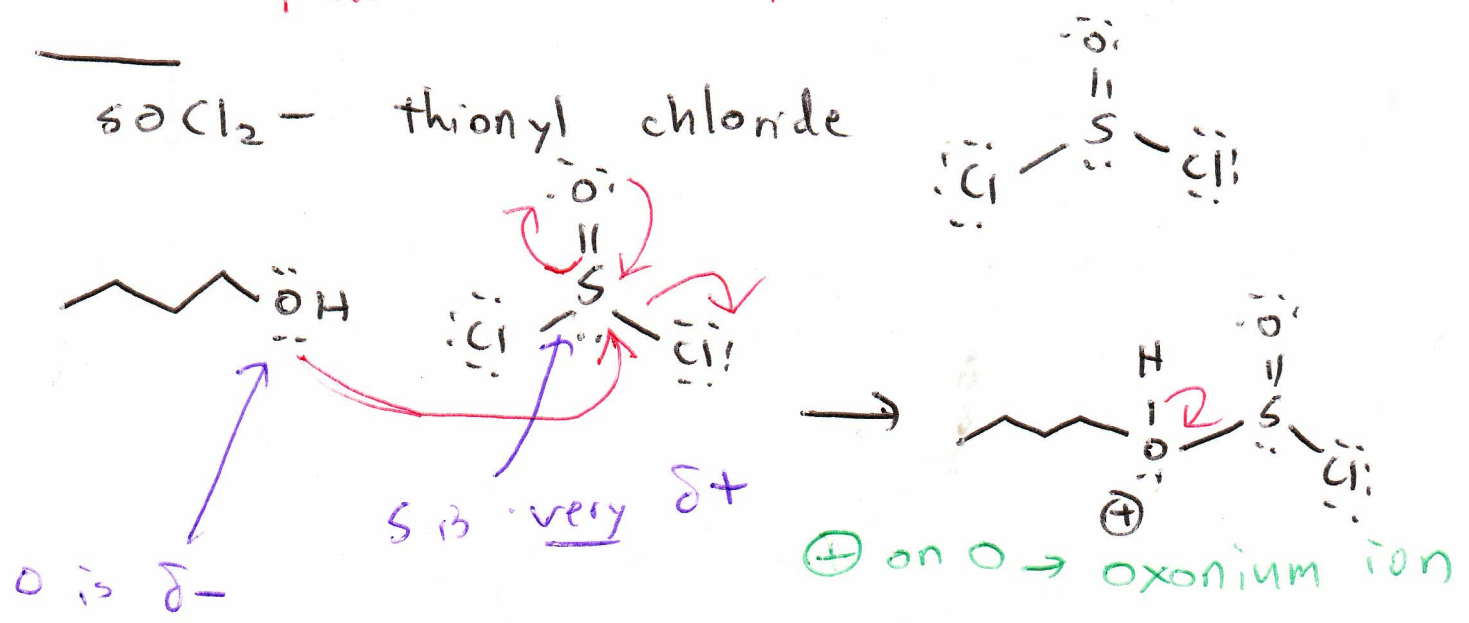 SOCl2 - thionyl chloride
O
S
Cl Cl
O
S
OH Cl Cl
O
H S
O Cl
⊕
S is very δ+
O is δ-
⊕ on O → oxonium ion